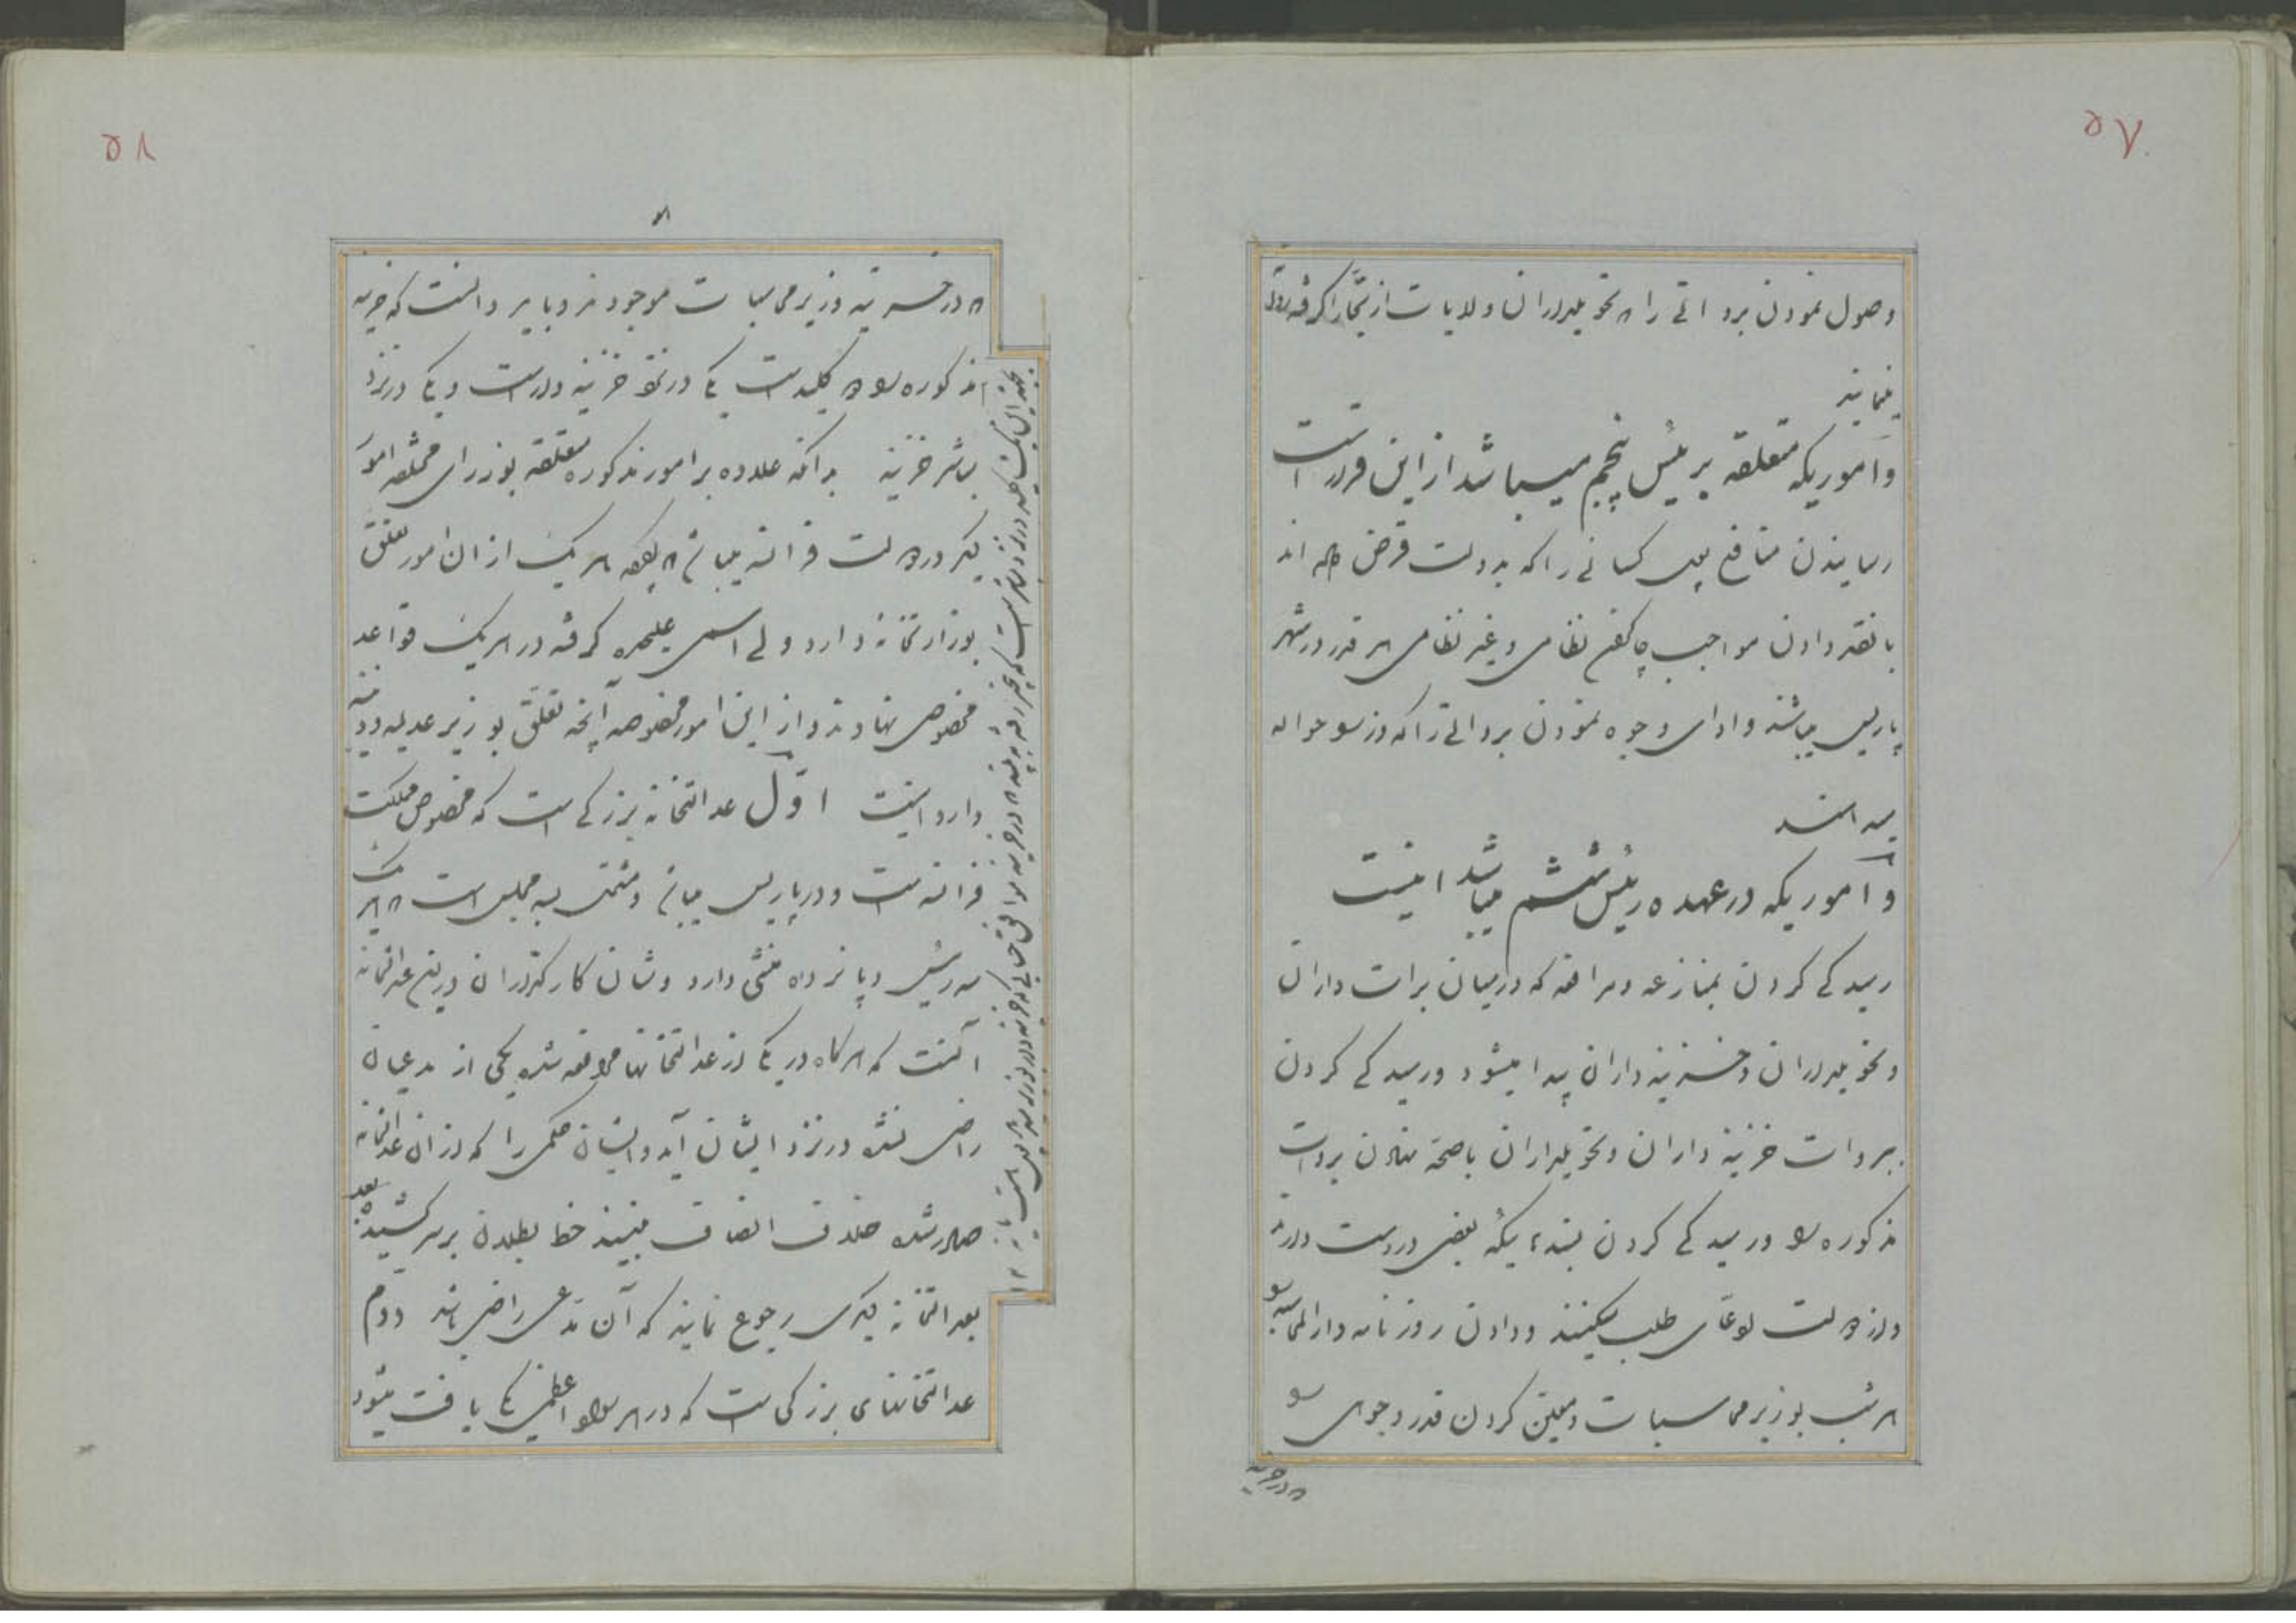 ۵۷
وصول نمودن برواتی را که تحویلداران ولایات از تجار گرفته روانه
مینمایند
و اموریکه متعلقه برئیس پنجم میباشد از این قرار است
رسانیدن منافع پول کسانی را که بدولت قرض داده اند
با نقد دادن مواجب چاکران نظامی و غیر نظامی هر قدر در شهر
پاریس میباشند و ادای وجوه نمودن برواتی را که وزرا حواله
و اموریکه در عهده رئیس ششم میباشد اینست
رسیدگی کردن بمنازعه و مرافعه که در میان برات داران
و تحویلداران و خزینه داران پیدا میشود و رسیدگی کردن
ببروات خزینه داران و تحویلداران با صحه نهادن بروات
مذکوره را و رسیدگی کردن بسندهائیکه بعضی در دست دارند
و از دولت ادعای طلب میکنند و دادن روزنامه دار المحاسبه را
هر شب بوزیر محاسبات و معین کردن قدر وجوهی را
که در خزینه
۵۸
که در خزینه وزیر محاسبات موجود بود و باید دانست که خزینه
مذکوره را دو کلید است یکی در نزد خزینه دار است و یکی در نزد
مباشر خزینه بدانکه علاوه بر امور مذکوره متعلقه بوزرای مختلفه امور
دیگر در دولت فرانسه میباشد که اگرچه هر یک از آن امور تعلق
بوزارتخانه دارد ولی اسمی علیحده گرفته در هر یک قواعد
مخصوصی نهادند و از این امور مخصوصه آنچه تعلق بوزیر عدلیه و دینیه
دارد اینست اول عدالتخانه بزرگی است که مخصوص مملکت
فرانسه است و در پاریس میباشد و مشتمل بسه مجلس است که هر یک
سه رئیس و پانزده منشی دارد و شأن کارگذاران در این عدالتخانه
آنست که هرگاه در یکی از عدالتخانها مرافعه شده یکی از مدعیان
راضی نشده در نزد ایشان آید و ایشان حکمی را که از آن عدالتخانه
صادر شده خلاف انصاف ببینند خط بطلان بر سر کشیده بعد
بعدالتخانه دیگری رجوع نمایند که آن مدعی راضی باشد دوم
عدالتخانهای بزرگی است که در هر بلاد اعظمی یکی یافت میشود